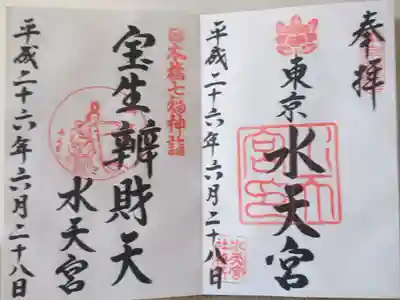 奉拝
東京 水天宮
平成二十六年六月二十八日
日本橋七福神詣
宝生辨財天
水天宮
平成二十六年六月二十八日